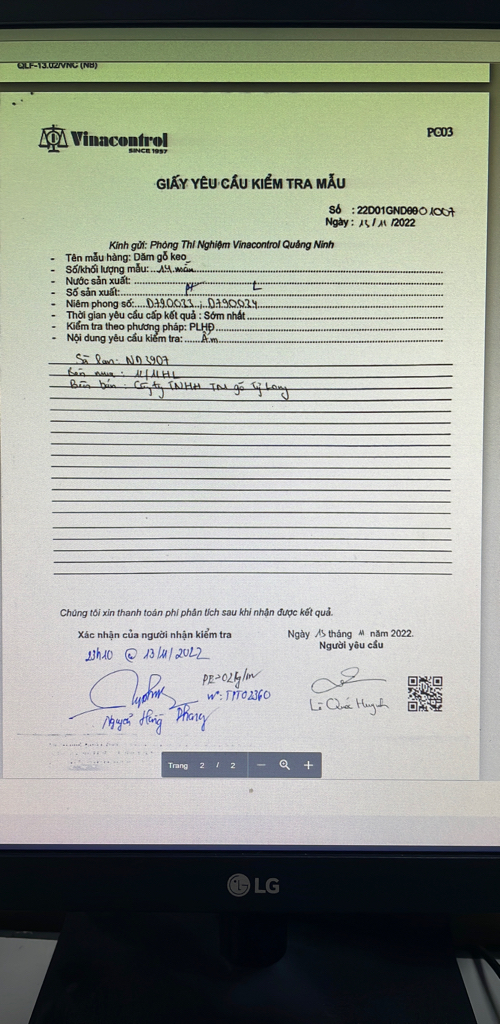 QLF-13.02/VNC (NB)
Vinacontrol
SINCE 1957
PC03
GIẤY YÊU CẦU KIỂM TRA MẪU
Số : 22D01GND0901007
Ngày : 13/11/2022
Kính gửi: Phòng Thí Nghiệm Vinacontrol Quảng Ninh
- Tên mẫu hàng: Dăm gỗ keo
- Số/khối lượng mẫu: 14 mẫu
- Nước sản xuất:
- Số sản xuất:
H L
- Niêm phong số: D790033 ; D790034
- Thời gian yêu cầu cấp kết quả : Sớm nhất
- Kiểm tra theo phương pháp: PLHĐ
- Nội dung yêu cầu kiểm tra: Ẩm
Sà lan: NĐ 3907
Bên mua :
Bên bán : Công ty TNHH TM gỗ Long
Chúng tôi xin thanh toán phí phân tích sau khi nhận được kết quả.
Xác nhận của người nhận kiểm tra
23h10 @ 13/11/2022
Nguyễn Hồng
Ngày 13 tháng 11 năm 2022.
Người yêu cầu
Lê Quốc Huynh
Trang 2 / 2
LG